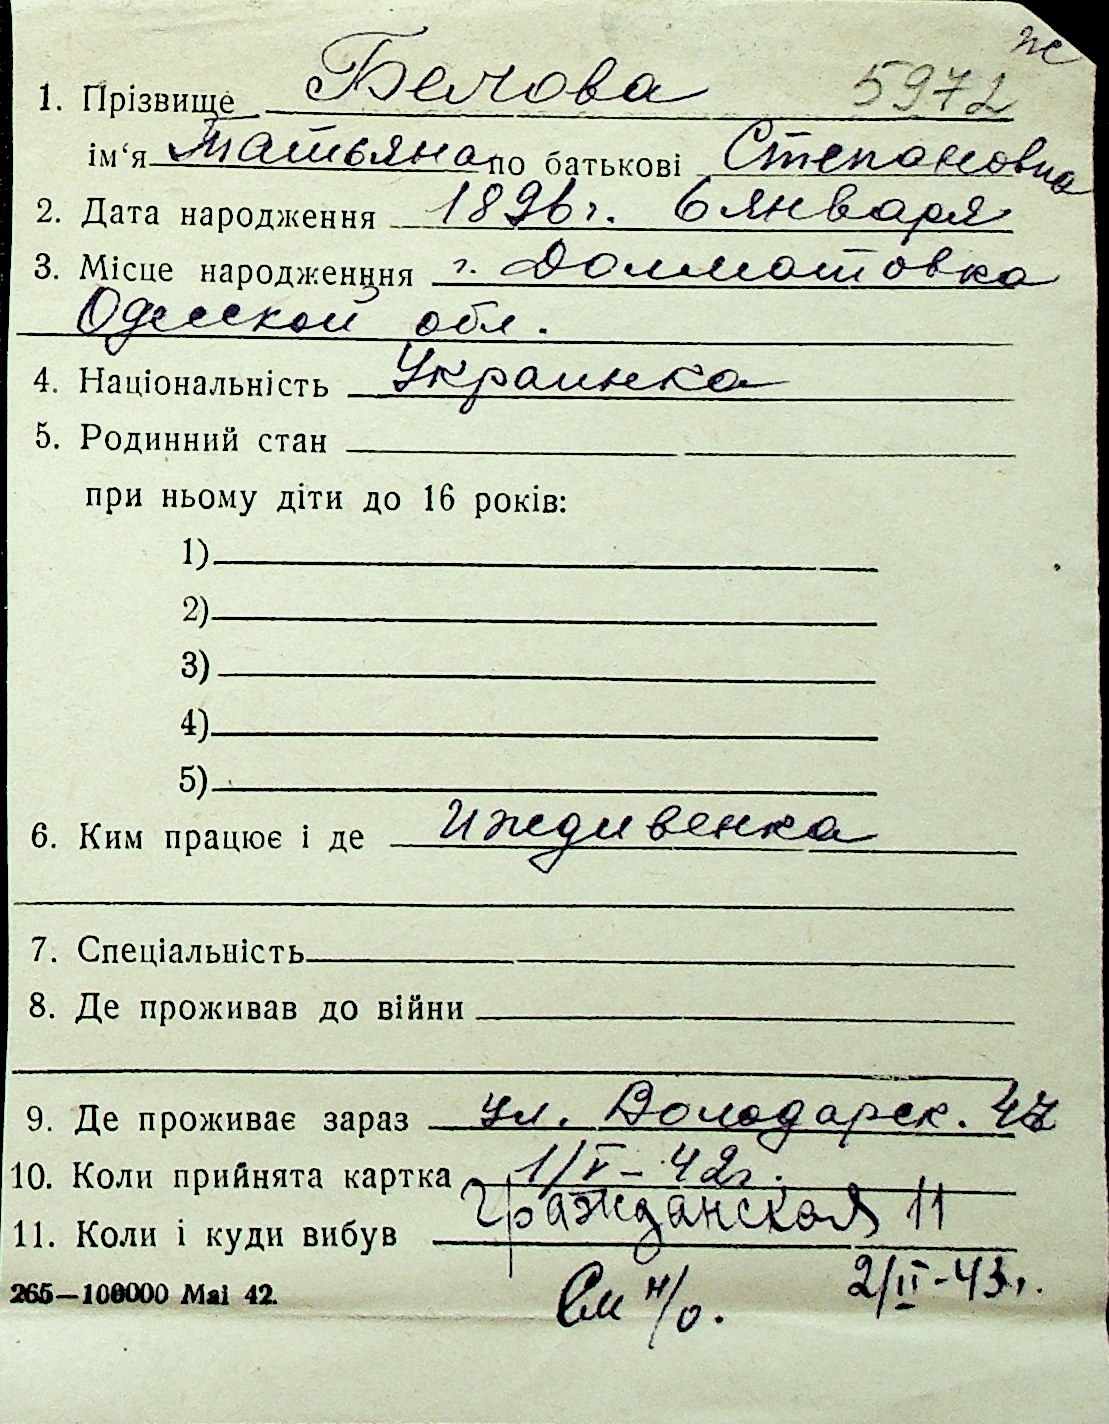 ж
1. Прізвище Белова 5972
ім‘я Татьяна по батькові Степановна
2. Дата народження 1896 г. 6 января
3. Місце народженння г. Долматовка
Одесской обл.
4. Національність Украинка
5. Родинний стан
при ньому діти до 16 років:
1)
2)
3)
4)
5)
6. Ким працює і де Иждивенка
7. Спеціальність
8. Де проживав до війни
9. Де проживає зараз ул. Володарск. 47
10. Коли прийнята картка 1/V – 42г.
11. Коли і куди вибув Гражданская 11
265—100000 Mai 42. См н/о. 2/II-43г.